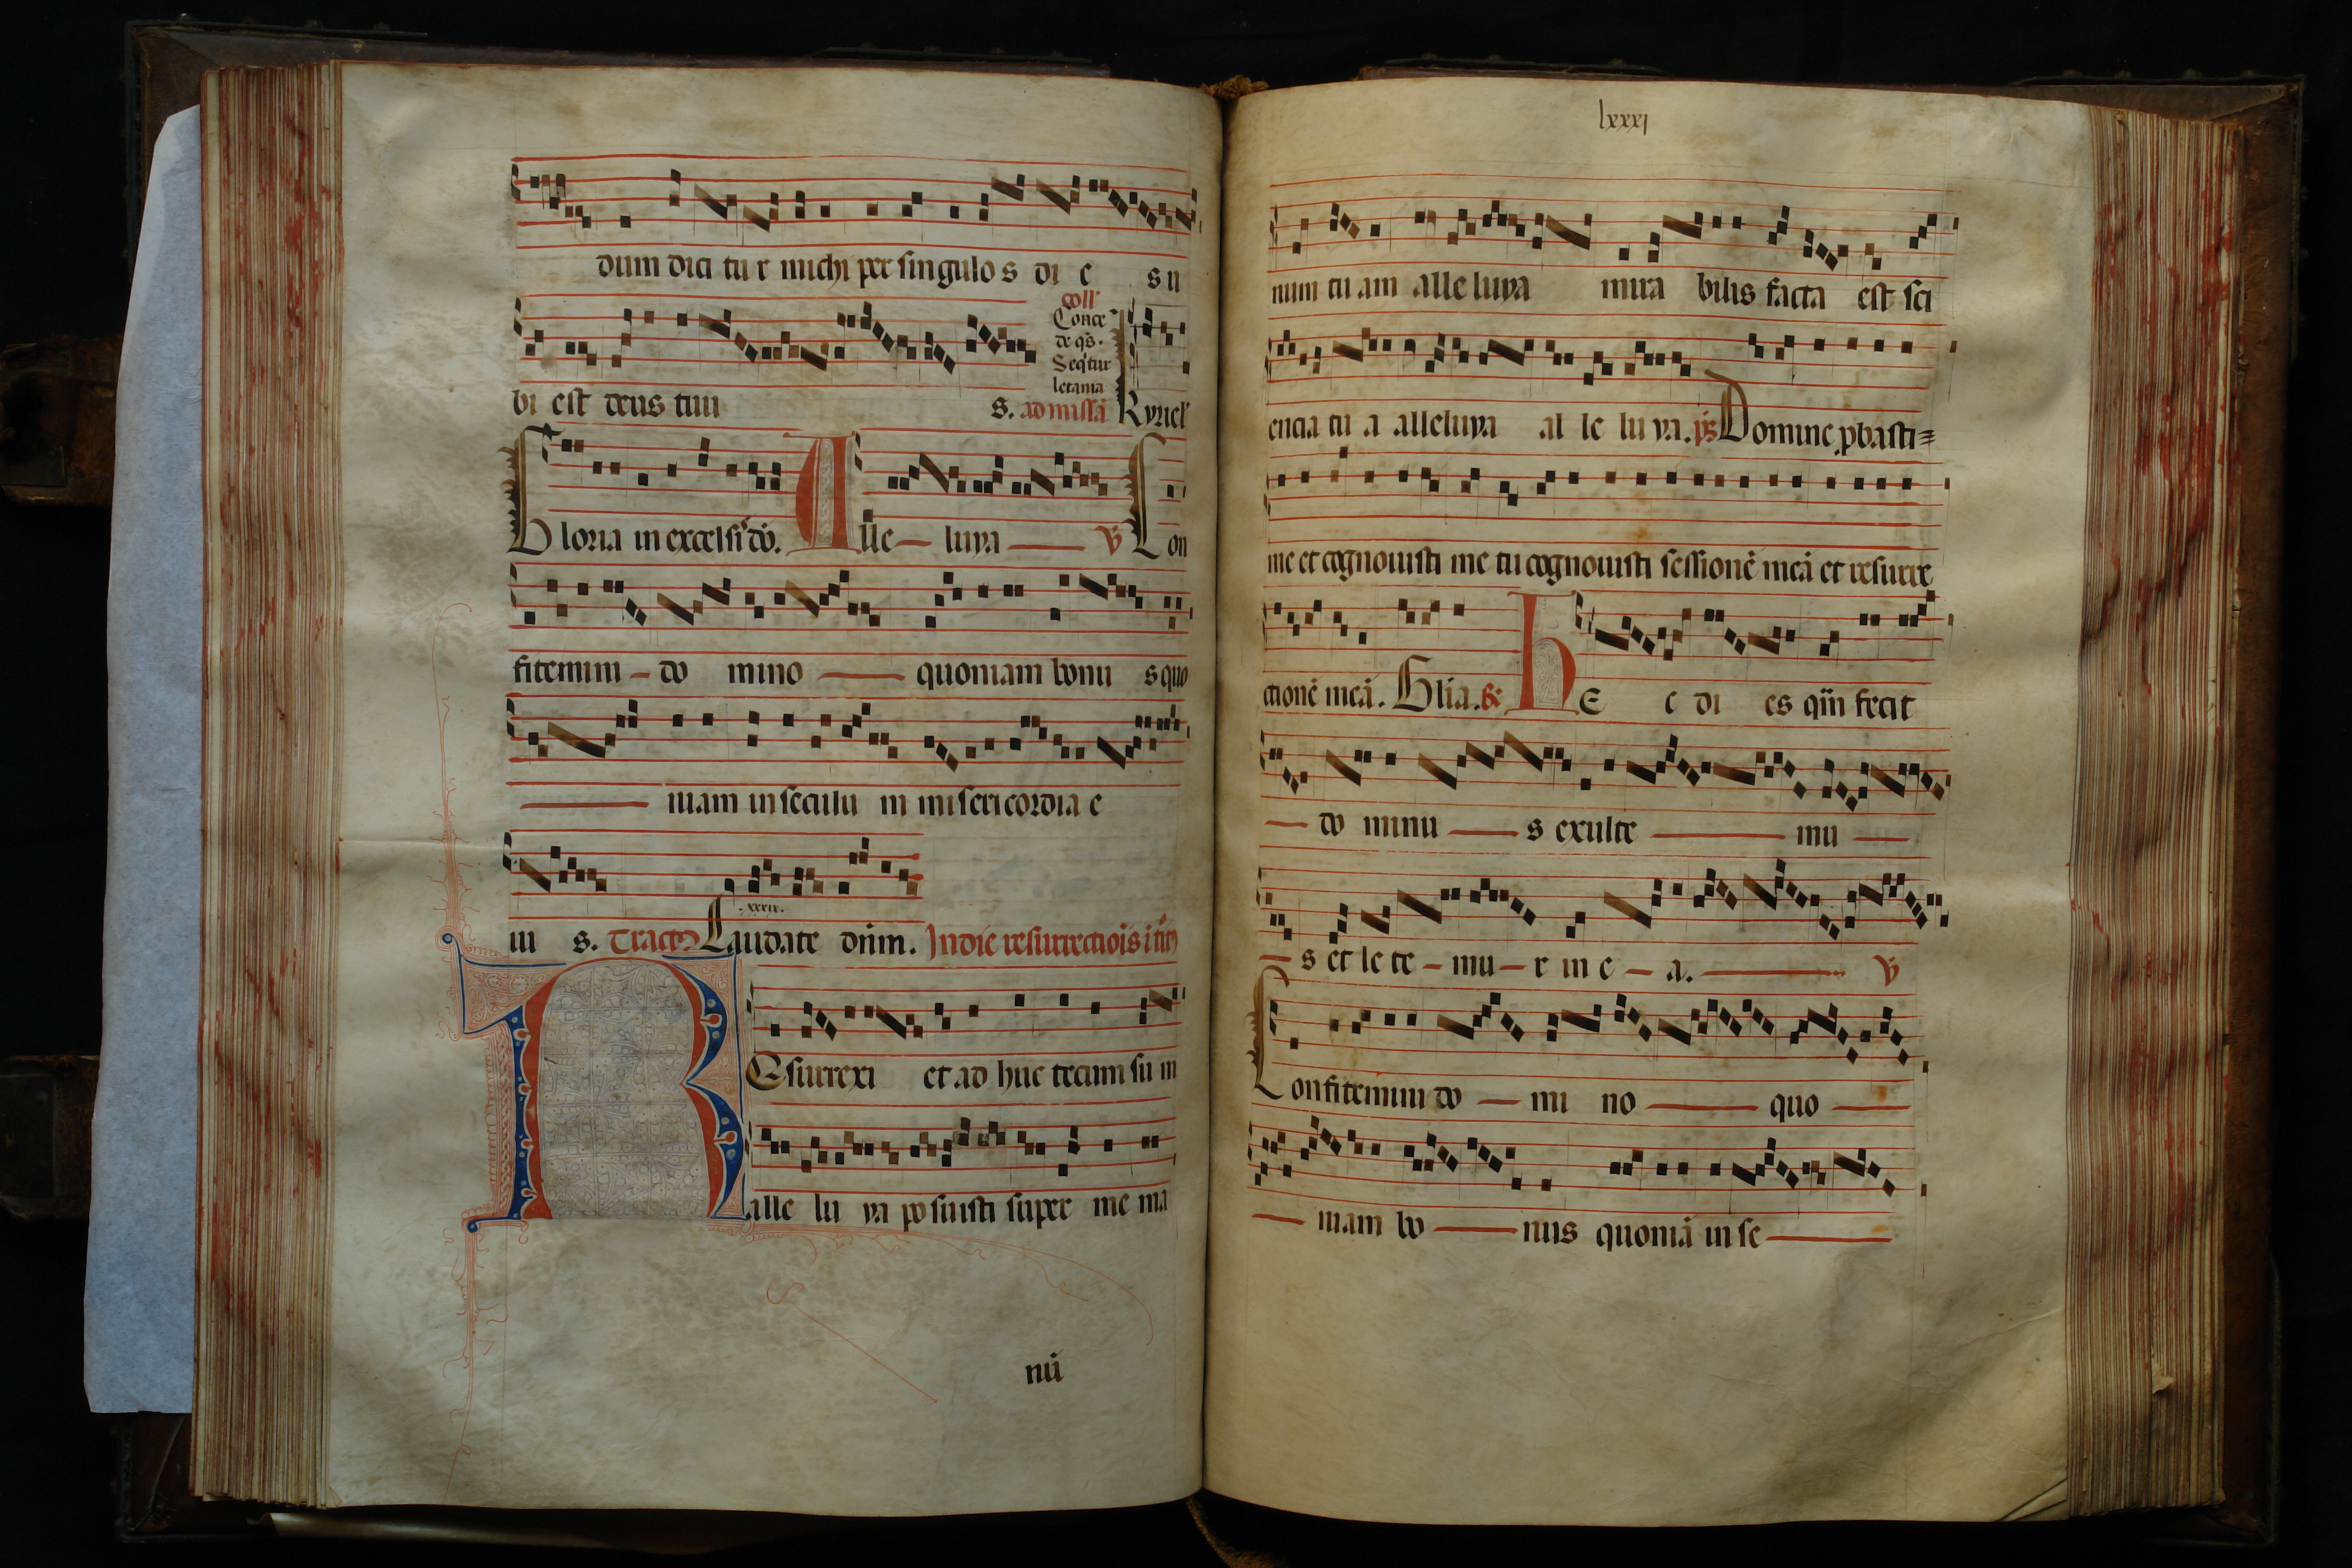 dum dici tu r michi per singulo s di e su
coll'
Conce
de qs.
Seq'tur
letania
bi est deus tuu s. ad missā Kyriel'
Gloria in excelsi do. Alle luya V Con
fitemini do mino quoniam bonu s quo
niam in seculu m misericordia e
.xxxix.
iu s. Tractus Laudate dnm. In die resurrectiois
Resurrexi et ad huc tecum su m
alle lu ya po suisti super me ma
nū
lxxxj
num tu am alle luya mira bilis facta est sci
encia tu a alleluya al le lu ya. ps Domine pbasti
me et cognouisti me tu cognouisti sessionē meā et resurre
ctionē meā. Glia. R hE c di es qm fecit
do minu s exulte mu
s et le te mu r in e a. V
Confitemini do mi no quo
niam bo nus quoniā in se